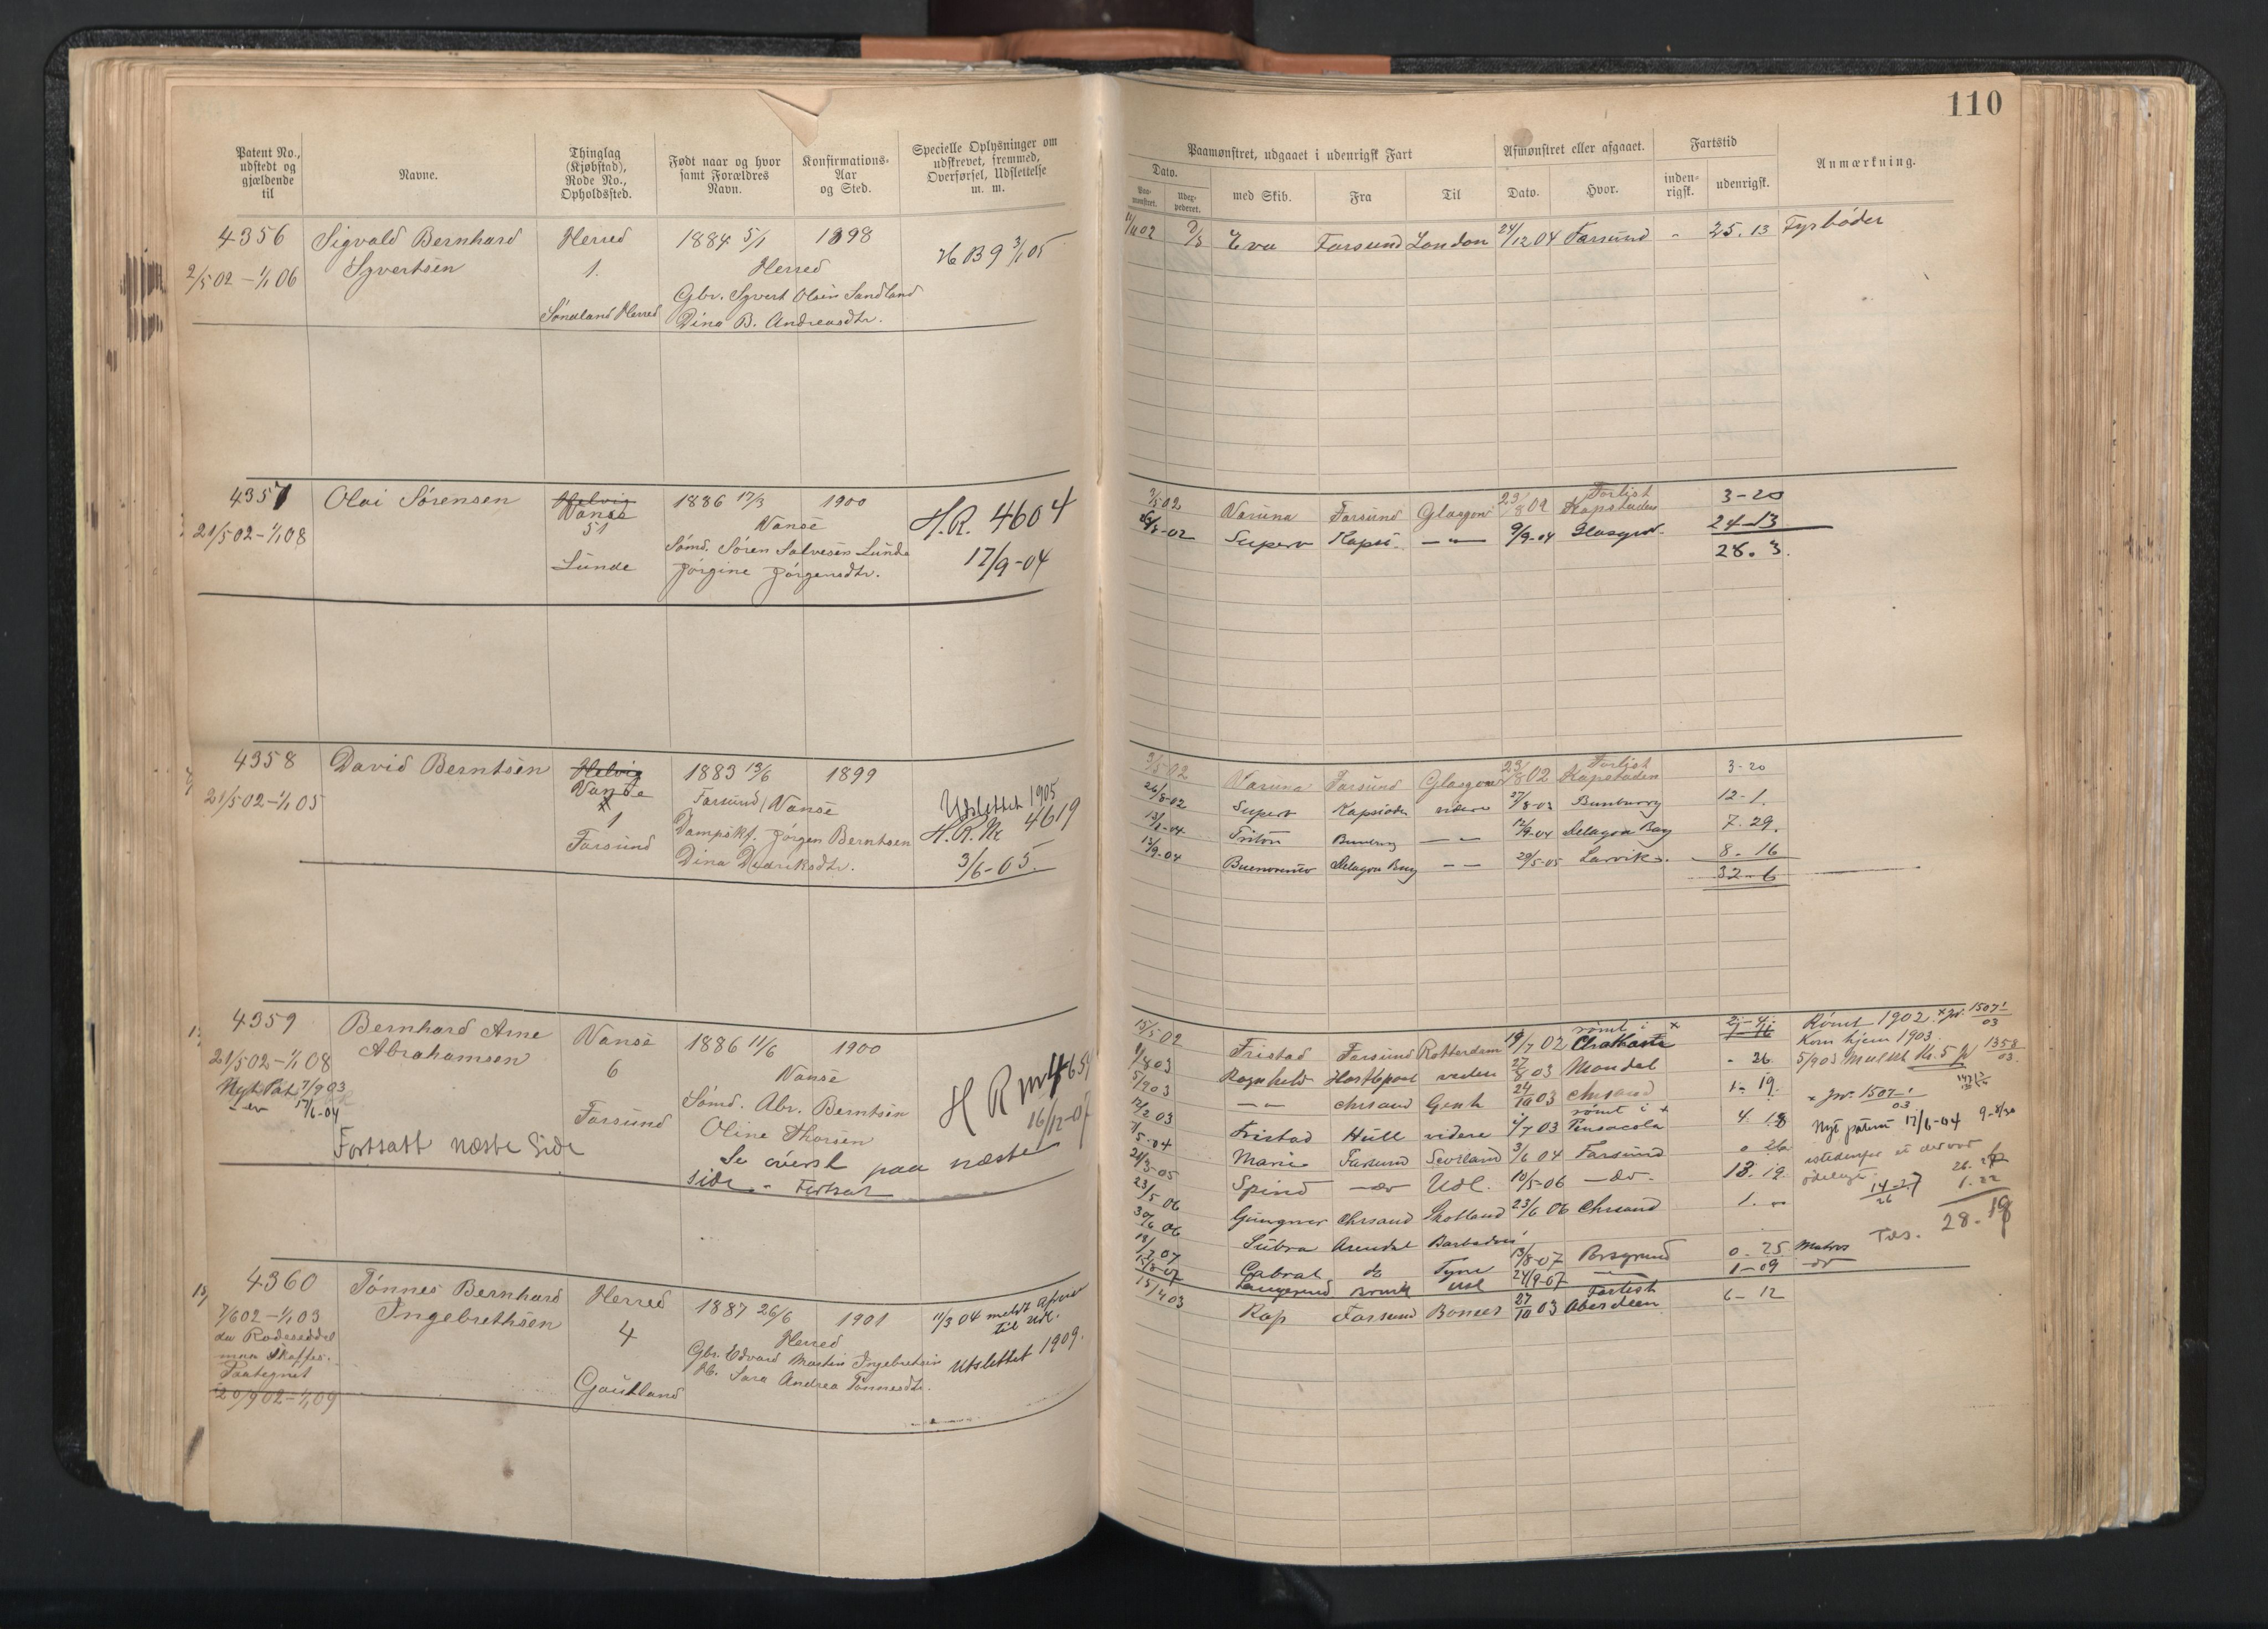 110
Patent No., udstedt og gjældende til
Navne.
Thinglag (Kjøbstad), Rode No., Opholdssted.
Født naar og hvor samt Forældres Navn.
Konfirmations-Aar og Sted.
Specielle Oplysninger om udskrevet, fremmed, Overførsel, Udslettelse m. m.
Paamønstret, udgaaet i udenrigsk Fart
Dato.
med Skib.
Fra
Til
Afmønstret eller afgaaet.
Dato.
Hvor.
Fartstid
inden-rigsk.
udenrigsk.
Anmærkning.
4356 Sigvald Bernhard Herred 1884 5/1 1898
2/5 02 - 1/1 06 Syvertsen 1. Herred
Gbr. Syvert Olsen Sandland
Dina B. Andreasdtr.
Eva Farsund London 24/12 04 Farsund - 25. 13 Fyrbøder
4357 Olai Sørensen Helvig 1886 17/3 1900
Vanse
21/5 02 - 1/1 08 51 Vanse
Sømd. Søren Salvesen Lunde
Lunde Jørgine Jørgensdtr.
H.R. 4604
17/9-04
Varuna Farsund Glasgow 23/8 02 Forlist Kapstaden 3-20
Superv Kapst. — 9/9-04 Glasgow 24-13
28. 3.
4358 David Berntsen Helvig 1883 13/6 1899
21/5 02 - 1/1 05 Vanse Farsund / Vanse
1 Dampskf. Jørgen Berntsen
Farsund Dina Didriksdtr.
Udslettet 1905
H.R. Nr 4619
3/6-05.
3/5-02 Varuna Farsund Glasgow 23/8 02 Forlist Kapstaden 3-20
26/8-02 Superv Kapstaden videre 27/8-03 Bunburry 12-1.
Triton Bunburry — 12/9-04 Delagoa Bay 7. 29.
13/9-04 Delagoa Bay — 29/5-05 Larvik. 8. 16
32-6
4359 Bernhard Arne Vanse 1886 11/6 1900
21/5 02 - 1/1 08 Abrahamsen 6 Vanse
Nyt Pat 7/9 03 Sømd. Abr. Berntsen
17/6-04 Farsund Oline Thorsen
Fortsatt næste Side
Se øverst paa næste
side. - Fortsat
H R nr 4659
16/12-07
15/5 02 Fristad Farsund Rotterdam 19/7 02 rømt i Rømt 1902.
Ragnhild Hartlepool videre 27/8 03 Mandal - 26. Kom hjem 1903.
5/9 03 — Chrsand Gent 24/10 03 Chrsand 1- 19.
5/9 03 mulkt Kr. 5
Fristad Hull videre 1/7 03 rømt i Pensacola 4. 18
Nyt patent 17/6-04
Marie Farsund 3/6 04 Farsund 0 26
Spind —do— Udl. 10/5-06 —do—. 13. 19.
istedenfor et der var
ødelagt
23/5 06 Gungner Chrsand Skotland 23/6 06 Chrsand 1. -
30/6 06 Arendal Barbados
Cabral do Tyne 13/8-07 Porsgrund 0-25 Matros
Langesund Udl 24/9-07 — 1-09 do
Tils. 28. 19
4360 Tønnes Bernhard Herred 1887 26/6 1901
7/6 02 - 1/1 03 Ingebrethsen 4 Herred
da Rodeseddel
maa skaffes.
Paategnet
20/9 02 - 1/1 09
Gbr. Edvard Martin Ingebretsen
Sara Andrea Tønnesdtr.
Gautland
11/3 04 meldt
til Udl.
Utslettet 1909.
15/4 03 Rap Farsund 27/10 03 Forlist Aberdeen 6- 12